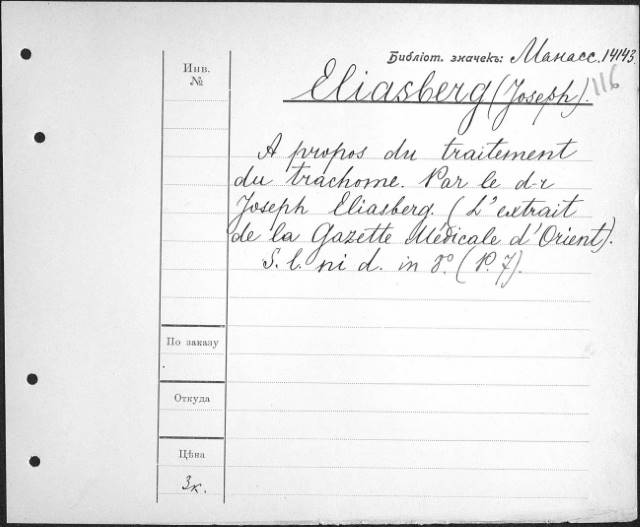 Библіот. значекъ: Манасс. 14143
116
Инв.
№
Eliasberg (Joseph).
A propos du traitement
du trachome. Par le d-r
Joseph Eliasberg. (L'extrait
de la Gazette Médicale d'Orient).
S. l. ni d. in 8°. (P. 7).
По заказу
Откуда
Цѣна
3к.